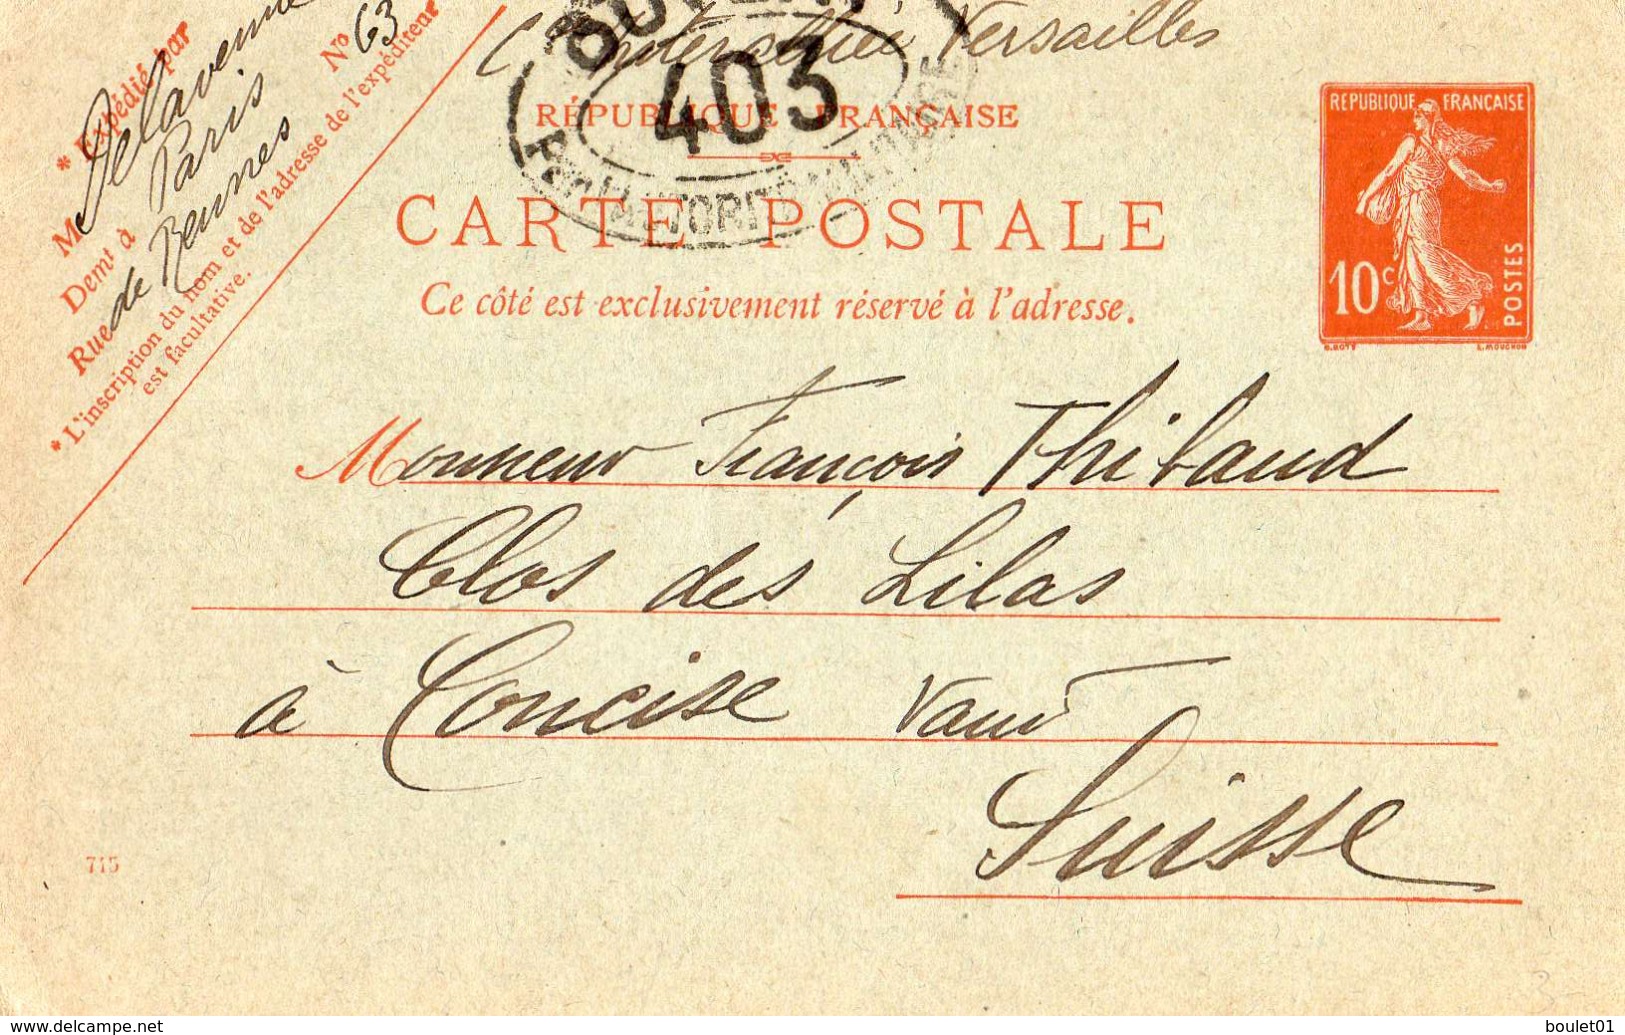 Cn Interalliée Versailles
OUVERT
403
PAR L'AUTORITÉ MILITAIRE
* Expédié par
M Delavenne
Demt à Paris
Rue de Rennes No 63
* L'inscription du nom et de l'adresse de l'expéditeur
est facultative.
RÉPUBLIQUE FRANÇAISE
CARTE POSTALE
Ce côté est exclusivement réservé à l'adresse.
REPUBLIQUE FRANÇAISE
10c
POSTES
O. ROTY L. MOUCHON
Monsieur François Thibaud
Clos des Lilas
à Concise Vaud
Suisse
715
3-
www.delcampe.net boulet01